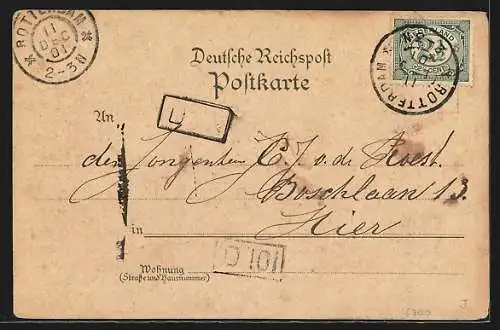 ROTTERDAM
11
DEC
01
2-3N
Deutsche Reichspost
Postkarte
ROTTERDAM
An
den Jongenheer C. J. v. d. Hoest.
Boschlaan 13.
in Hier
Wohnung
(Straße und Hausnummer)